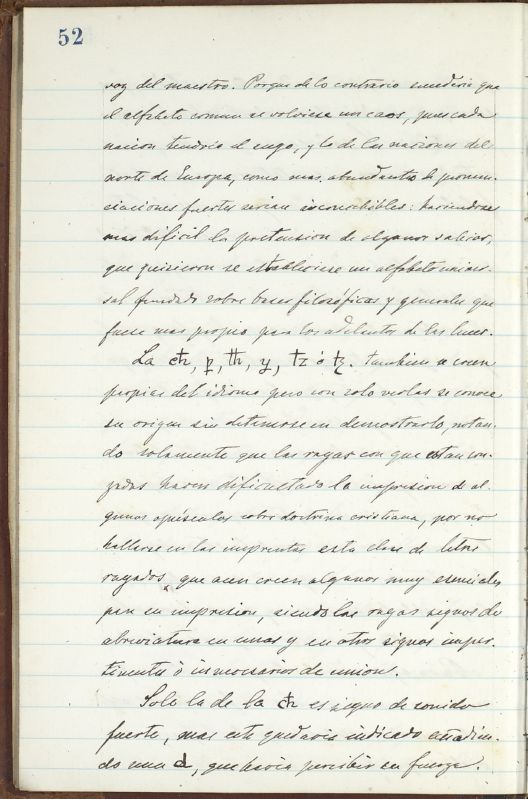 52
voz del maestro. Porque de lo contrario sucederia que
el alfabeto comun se volviese un caos, pues cada
nacion tendria el suyo, y lo de las naciones del
norte de Europa, como mas abundantes de pronun-
ciaciones fuertes serian inconocibles: haciendose
mas dificil la pretension de algunos sabios,
que quisieron se estableciese un alfabeto univer-
sal fundado sobre bases filosóficas y generales que
fuese mas propio para los adelantos de las luces.
La cħ, p, tħ, y, tz ó tȥ. tambien se creen
propias del idioma pero con solo verlas se conoce
su origen sin detenerse en demostrarlo, notan-
do solamente que las rayas con que estan cru-
zadas hacen dificultado la impresion de al-
gunos opúsculos sobre doctrina cristiana, por no
hallarse en las imprentas esta clase de letras
rayadas, que aun creen algunos muy esenciales
para su impresion, siendo las rayas signos de
abreviatura en unas y en otras signos imper-
tinentes ó innecesarios de union.
Solo la de la cħ es signo de sonido
fuerte, mas este quedaria indicado añadien-
do una d, que haria percibir su fuerza.